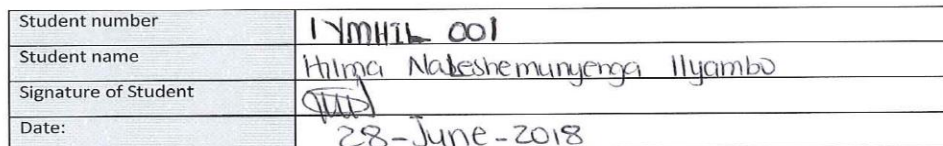 Student number IYMHIL 001
Student name Hilma Nakeshemunyenga Iiyambo
Signature of Student
Date: 28-June-2018